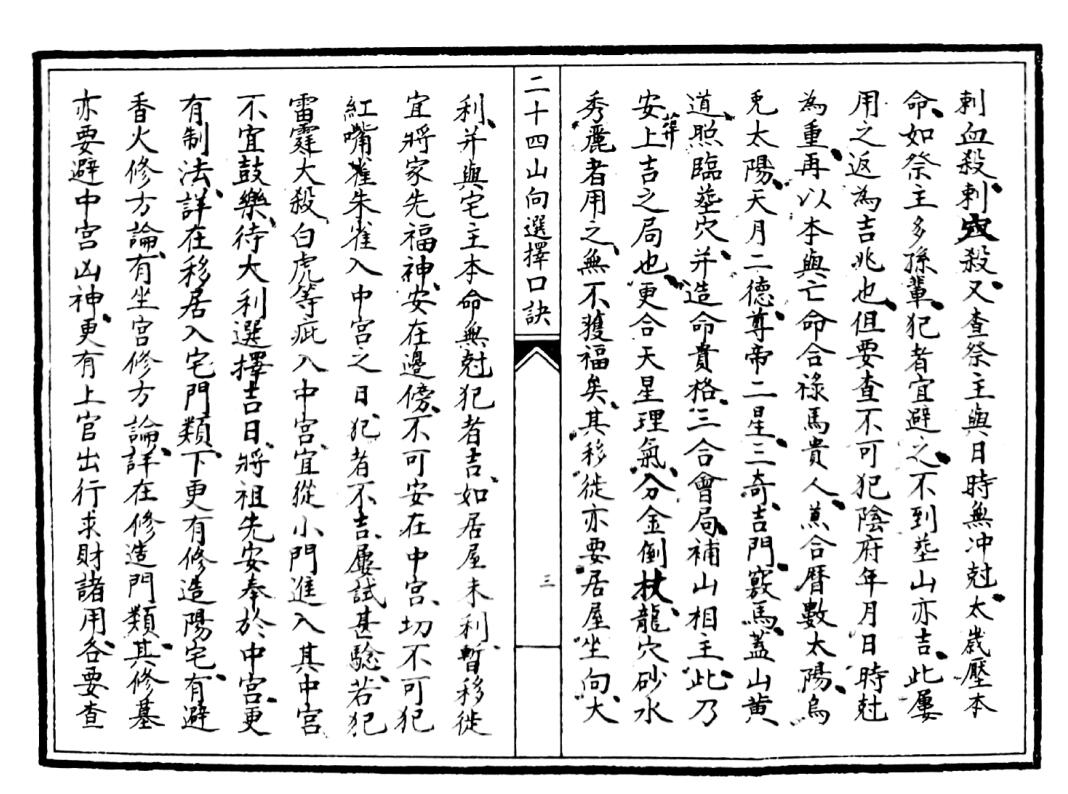 刺血殺、刺穴殺、又查祭主與日時無冲尅、太歲壓本
命、如祭主多孫輩、犯者宜避之、不到塟山亦吉、此屢
用之返為吉兆也、但要查不可犯陰府年月日時尅
為重、再以本與亡命合祿馬貴人、蕉合曆數太陽、烏
兎太陽、天月二德、尊帝二星、三奇、吉門、竅馬、蓋山黃
道、照臨塟穴、并造命貴格、三合會局、補山相主、此乃
安葬上吉之局也、更合天星理氣、分金倒杖、龍穴砂水
秀麗者用之、無不獲福矣、其移徙亦要居屋坐向、大
二十四山向選擇口訣
三
利、并與宅主本命無尅犯者吉、如居屋未利、暫移徙
宜將家先福神、安在邊傍、不可安在中宮、切不可犯
紅嘴雀朱雀入中宮之日、犯者不吉、屢試甚驗、若犯
雷霆大殺、白虎等疵入中宮、宜從小門進入、其中宮
不宜鼓樂、待大利選擇吉日、將祖先安奉於中宮、更
有制法、詳在移居入宅門類、下更有修造陽宅、有避
香火修方論、有坐宮修方論、詳在修造門類、其修墓
亦要避中宮凶神、更有上官出行求財諸用、各要查